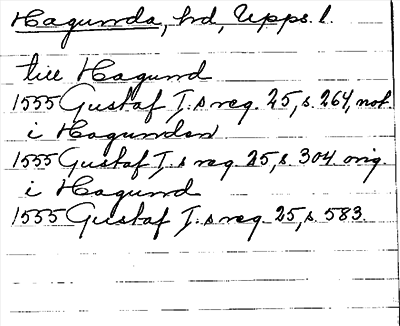 Hagunda, hd, Upps. l.
till Hagund
1555 Gustaf I:s reg. 25, s. 264, not.
i Hagunden
1555 Gustaf I:s reg. 25, s. 304 orig.
i Hagund
1555 Gustaf I:s reg. 25, s. 583.